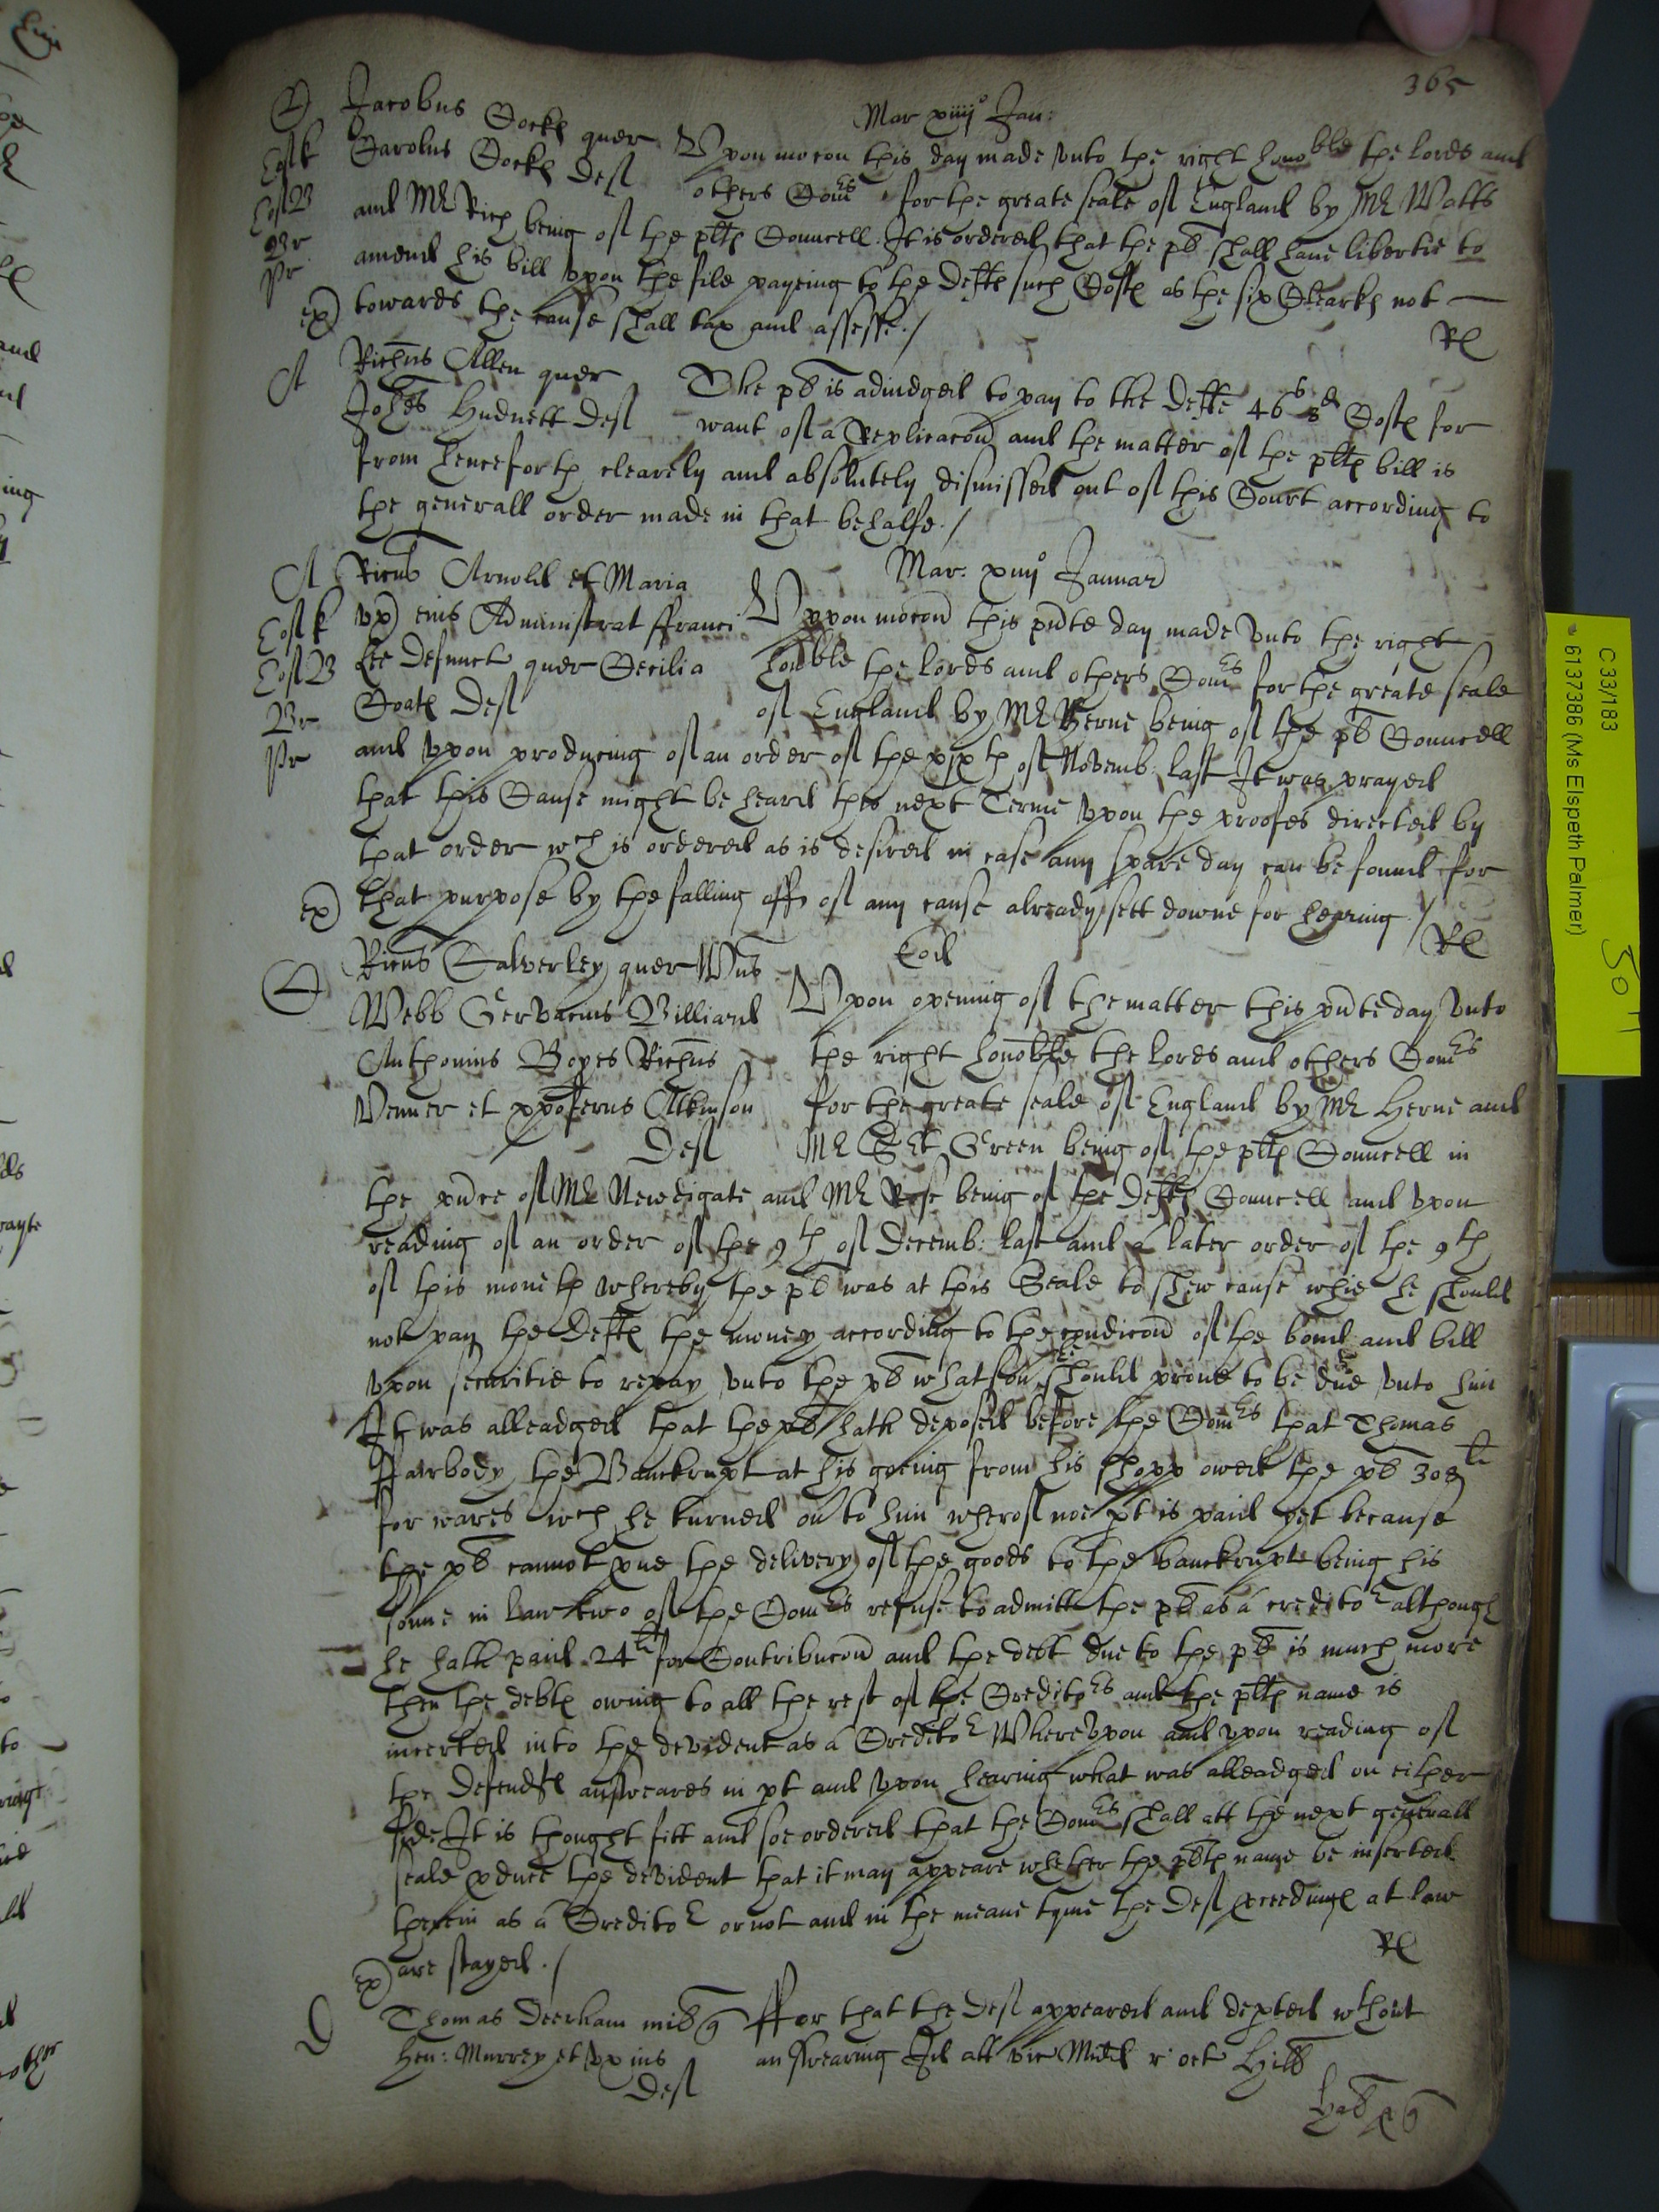 365
Mar xiiij° Jan:
C Jacobus Cocks quer Upon mocon this day made unto the right hono:ble the lords and
Carolus Cocks Def others Com:rs for the greate seale of England by Mr Watts
and Mr Rich being of the plts Councell. It is ordered that the pl shall have libertie to
amend his bill upon the file payeing to the Defts such Costs as the six Clearks not
towards the cause shall tax and assesse./
ex) Rl
A Richus Allen quer The pl is adiudged to pay to the Defte 46s 8d Costs for
Johes Hudnett Def want of a Replicacon and the matter of the plts bill is
from henceforth clearely and absolutely dismissed out of this Court according to
the generall order made in that behalfe./
Mar: xiiij° Januar
A Ricus Arnold et Maria
ux) eius Administrat ffranci Uppon mocon this pnte day made unto the right
Lee Defunct quer Cecilia honoble the lords and others Com:rs for the greate seale
Coats Def of England by Mr Herne being of the pl Councell
and upon producing of an order of the xixth of Novemb: last It was prayed
that this Cause might be heard this next Terme upon the proofes directed by
that order wch is ordered as is desired in case any spare day can be found for
ex) that purpose by the falling off of any cause already sett downe for hearing./
Rl
Eod
C Ricus Calverley quer Wms
Webb Gervacius Billiard Upon opening of the matter this pnte day unto
Anthonius Boyes Richus the right honoble the lords and others Com:rs
Venner et xpoferus Atkinson for the greate seale of England by Mr Herne and
Def Mr Set Green being of the plts Councell in
the pnce of Mr Newdigate and Mr Rose being of the Defts Councell and upon
reading of an order of the 9th of Decemb: last and a later order of the 9th
of this moneth whereby the pl was at this Seale to shew cause whie he should
not pay the Defts the money according to the condicon of the bond and bill
upon securitie to repay unto the pl whatsoev:r should prove to be due unto him
It was alleadged that the pl hath deposed before the Com:rs that Thomas
ffairbody the Banckrupt at his goeing from his shopp owed the pl 308li
for wares wch he turned ov to him wherof noe pt is paid yet because
the pl cannot pve the delivery of the goods to the banckrupte being his
sonne in law two of the Com:rs refuse to admitt the pl as a creditor although
he hath paid 24li for Contribucon and the debt due to the pl is much more
then the debts owing to all the rest of the Creditors and the plts name is
incerted into the devident as a Creditor Whereupon and upon reading of
the Defendts answeares in pt and upon hearing what was alleadged on either
side It is thought fitt and soe ordered that the Com:rs shall att the next generall
seale pduce the devident that it may appeare whether the plts name be inserted
therein as a Creditor or not and in the meane tyme the Def pceedings at law
ex) are stayed./
Rl
D Thomas Deerham mil q ffor that the Def appeared and depted wthout
Hen: Murrey et ux ius answearing Id att vic Midd r oct Hill
Def
C 33/183
6137386 (Ms Elspeth Palmer)